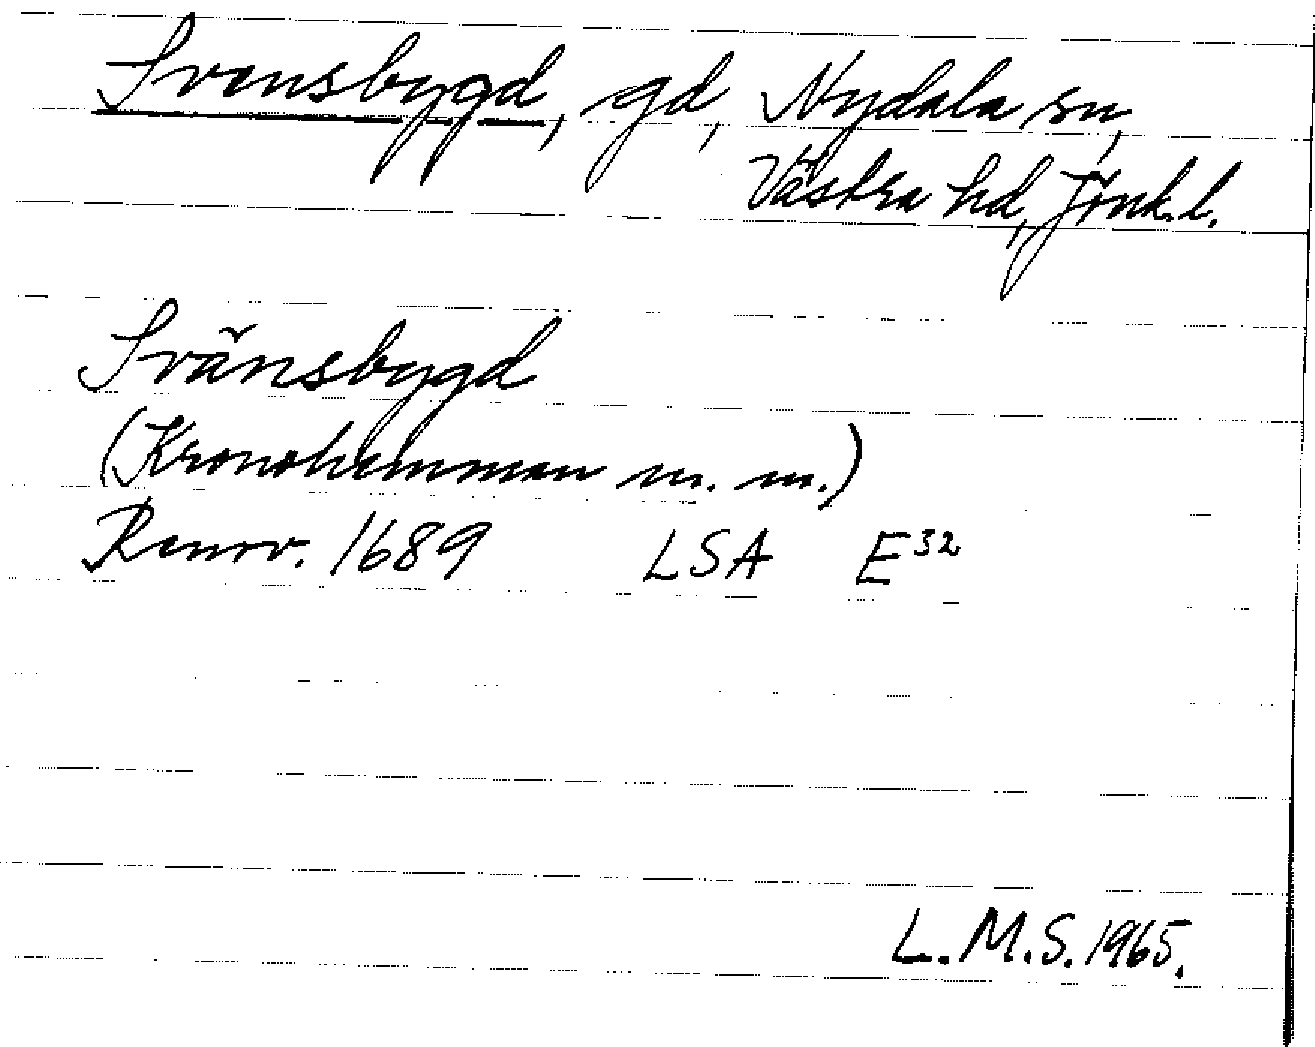 Svensbygd, gd, Nydala sn,
Västra hd, Jönk.l.
Svänsbygd
(Kronohemman m. m.)
Renov. 1689 LSA E32
L.M.S. 1965.